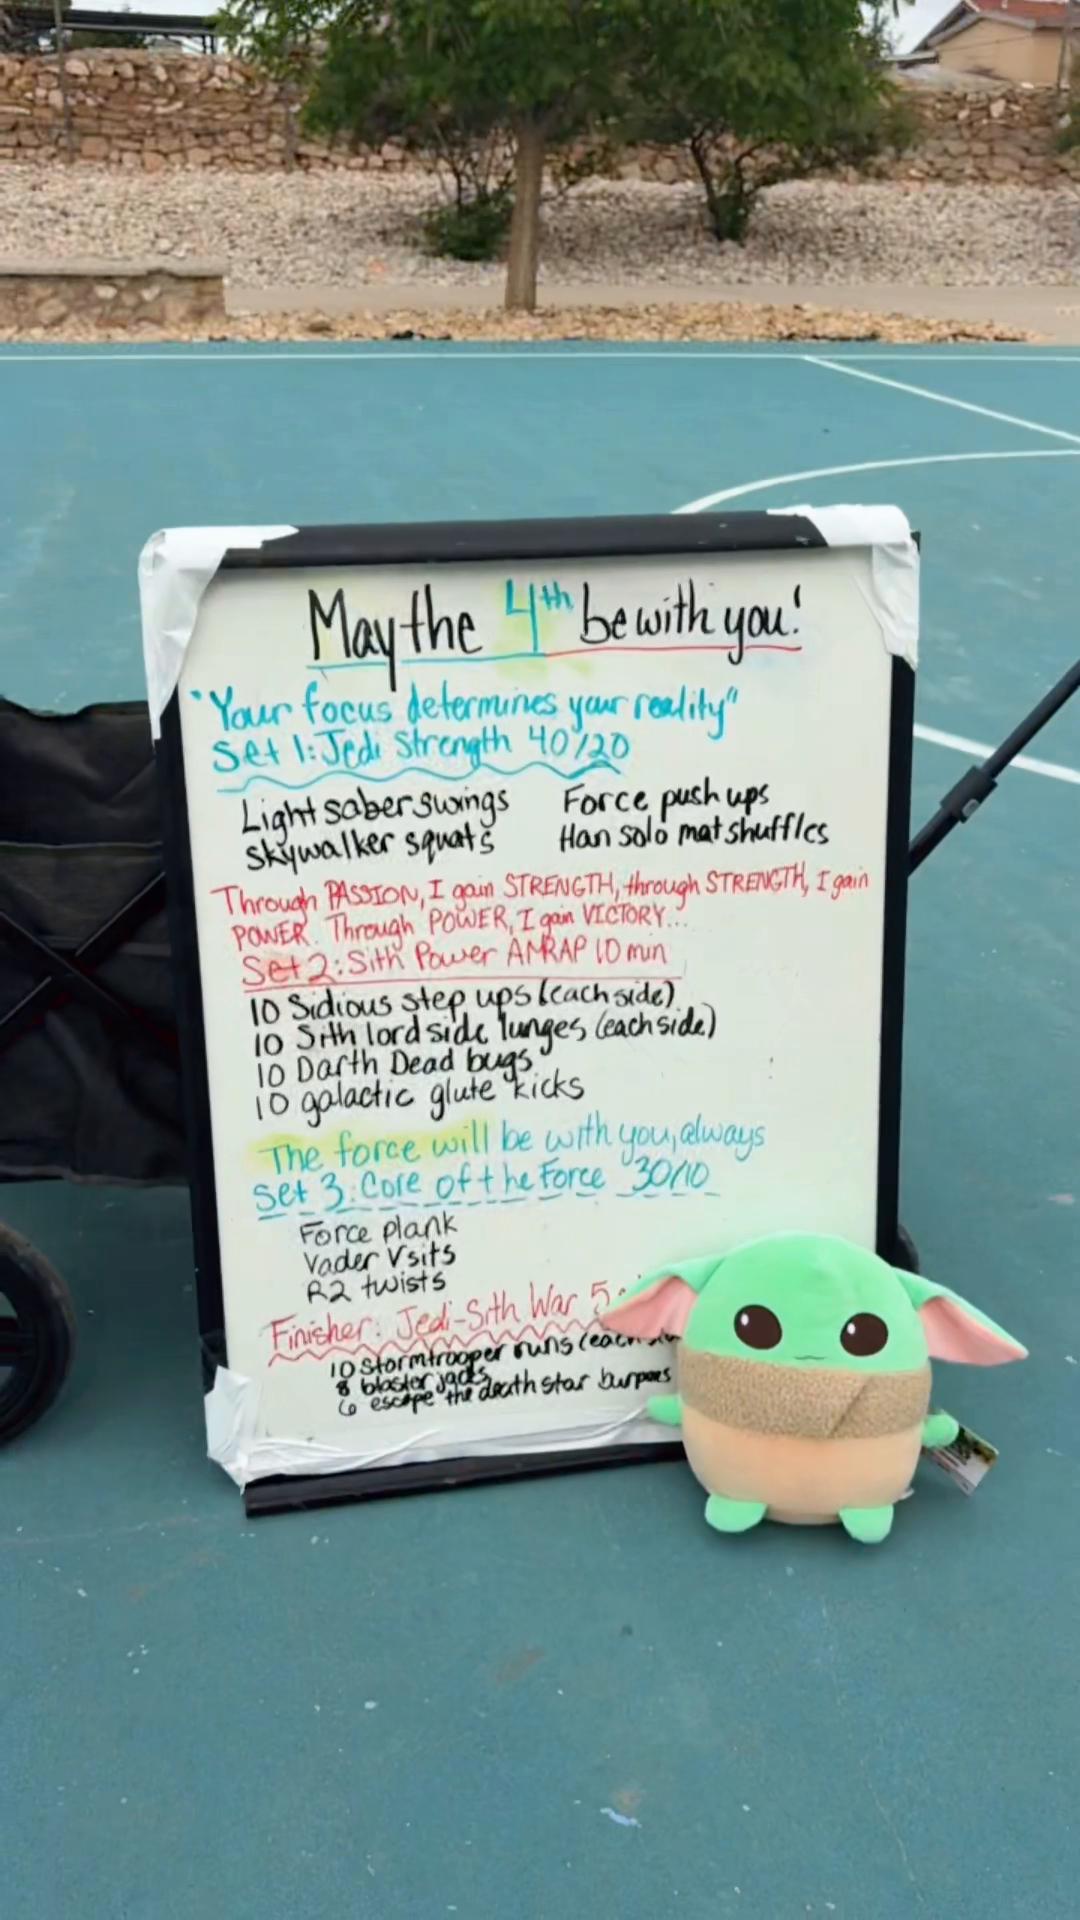 May the 4th be with you!
"Your focus determines your reality"
Set 1: Jedi Strength 40/20
Light saber swings Force push ups
Skywalker squats Han solo mat shuffles
Through PASSION, I gain STRENGTH, through STRENGTH, I gain
POWER. Through POWER, I gain VICTORY...
Set 2: Sith Power AMRAP 10 min
10 Sidious step ups (each side)
10 Sith lord side lunges (each side)
10 Darth Dead bugs
10 galactic glute kicks
The force will be with you, always
Set 3: Core of the Force 30/10
Force plank
Vader Vsits
R2 twists
Finisher: Jedi-Sith War 5
10 stormtrooper runs (each
8 blaster jacks
6 escape the death star burpees